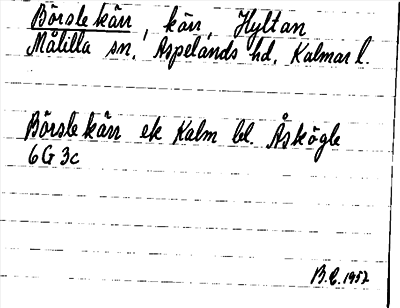 Börsle kärr, kärr, Hyltan
Målilla sn. Aspelands hd. Kalmar l.
Börsle kärr ek Kalm bl. Åskögle
6G 3c
B.E. 1957